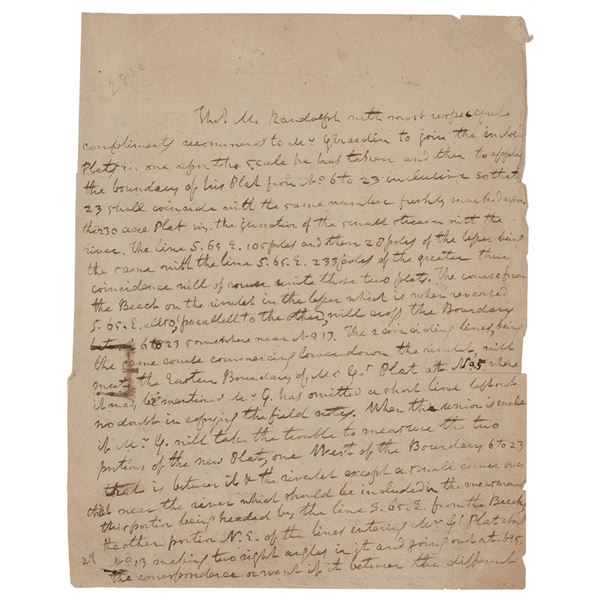 2838
Thos. M. Randolph with most respectful
compliments recommends to Mr Girardin to join the inclosed
Plats in one upon the scale he has taken and then to apply
the boundary of his Plat from No 6 to 23 inclusive so that
23 shall coincide with the same number freshly marked upon
the 230 acre Plat viz. the junction of the small stream with the
river. The line S. 65 E. 105 poles and then 28 poles of the lesser being
the same with the line S. 65. E. 233 poles of the greater their
coincidence will of course unite those two plats. The course from
the Beech on the rivulet in the lesser which is when reversed
S. 65. E. also, parallell to the other, will cross the Boundary
6 to 23 somewhere near No 13. The 2 coinciding lines, being
the same course commencing lower down the rivulet, will
meet the Eastern Boundary of Mr G.s Plat at No 5 where
it may be mentioned Mr G. has omitted a short line left out
no doubt in copying the field notes. When the union is made
if Mr G. will take the trouble to measure the two
portions of the new Plat, one West of the Boundary 6 to 23
that is between it & the rivulet except a small corner over
that near the river which should be included in the
this portion being headed by the line S. 65. E. from the Beech,
the other portion N. E. of the lines entering Mr G's Plat about
No 13 making two right angles in it and going out at No 5.
29 the correspondence or want of it between the different